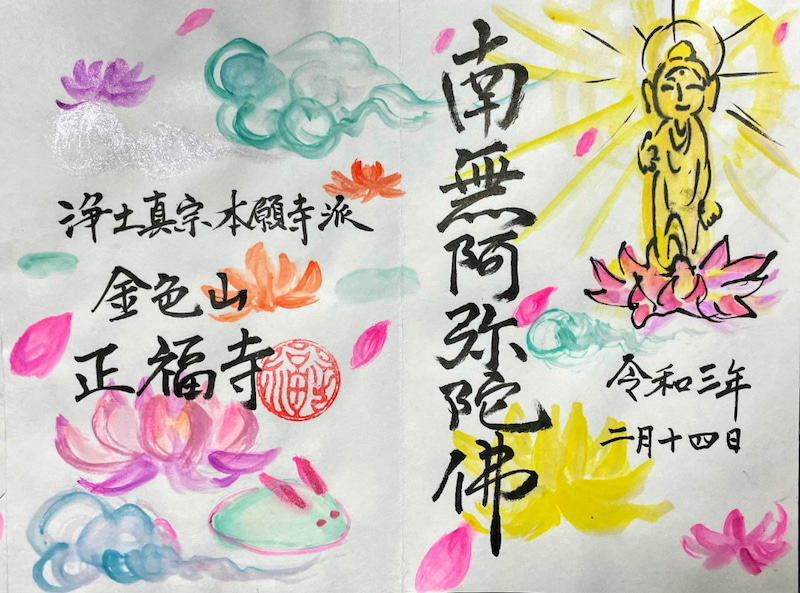 南無阿弥陀佛
令和三年
二月十四日
浄土真宗本願寺派
金色山
正福寺